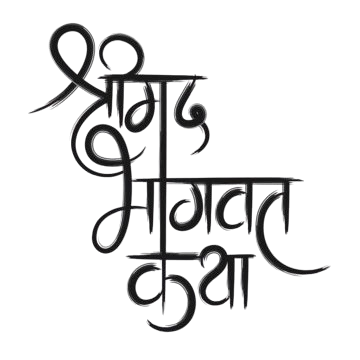 श्रीमद
भागवत
कथा